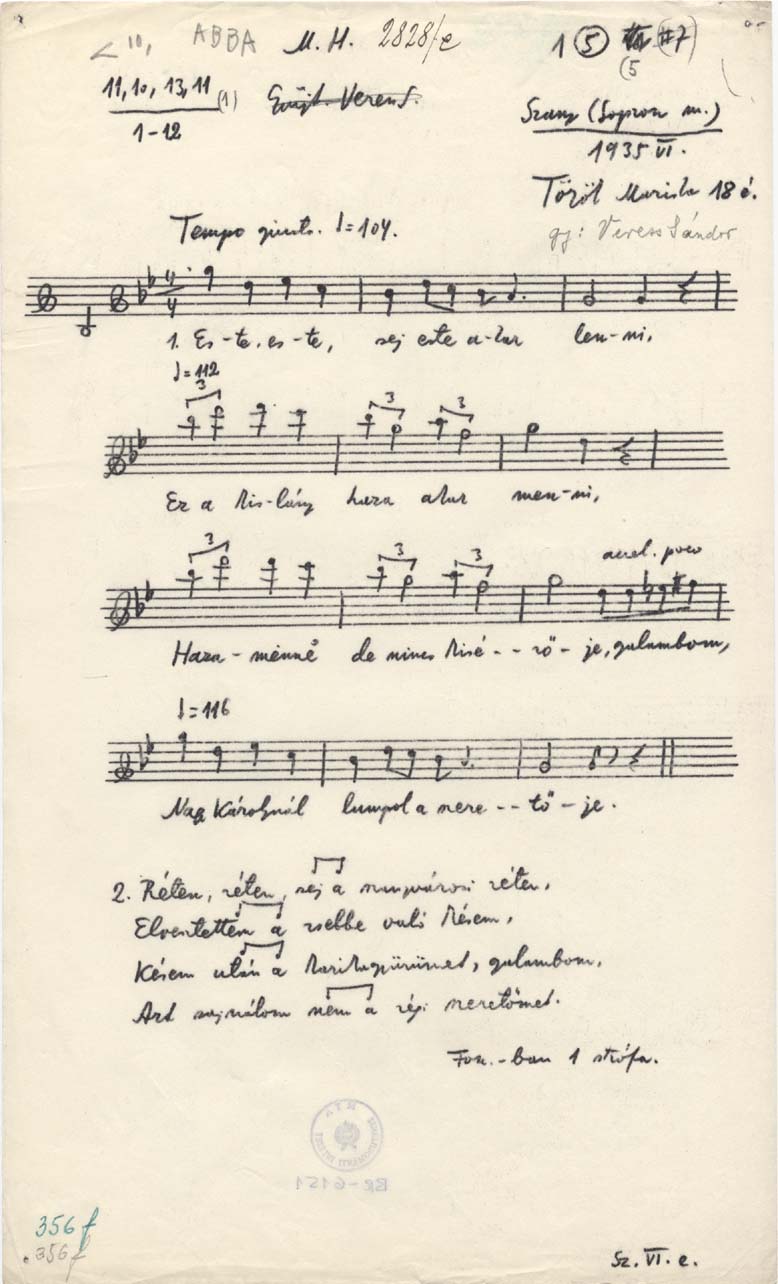 ABBA M. H. 2828/e 1 5 #7
11, 10, 13, 11 (1) Gyűjt. Veress S. (5
1-12 Szany (Sopron m.)
1935 VI.
Török Mariska 18 é.
gy: Veress Sándor
Tempo giusto. ♩=104.
1. Es-te, es-te, sej este a-kar len-ni,
♩=112
3 3 3
Ez a kis-lány haza akar men-ni,
3 3 3 accel. poco
Haza-menne de nincs kisé--rő-je, galambom,
♩=116
Nagy Károlynál lumpol a szere--tő-je.
2. Réten, réten, sej a réten,
Elvesztettem a zsebbe való késem,
Késem után a karikagyűrűmet, galambom,
Azt sajnálom nem a régi szeretőmet.
Fon.-ban 1 strófa.
BR-6151
356 f
356 f
Sz. VI. e.